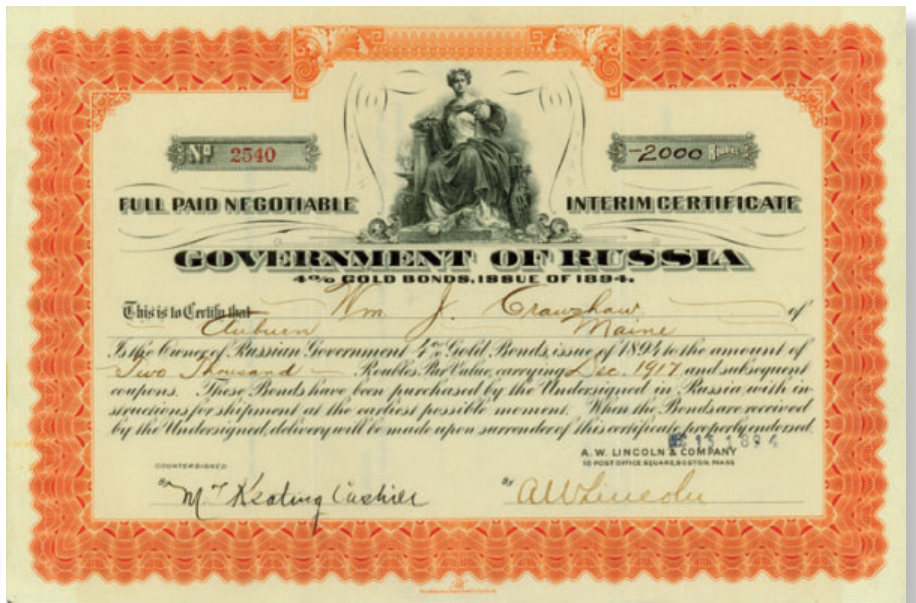 Nº 2540
-2000 Roubles
FULL PAID NEGOTIABLE
INTERIM CERTIFICATE
GOVERNMENT OF RUSSIA
4% GOLD BONDS, ISSUE OF 1894.
This is to Certify that Wm. J. Crawshaw of
Auburn Maine
Is the Owner of Russian Government 4% Gold Bonds, issue of 1894 to the amount of
Two Thousand Roubles Par Value, carrying Dec. 1917 and subsequent
coupons. These Bonds have been purchased by the Undersigned in Russia with in-
structions for shipment at the earliest possible moment. When the Bonds are received
by the Undersigned, delivery will be made upon surrender of this certificate properly endorsed.
13 1894
A. W. LINCOLN & COMPANY
10 POST OFFICE SQUARE, BOSTON, MASS
COUNTERSIGNED
By M. T. Keating Cashier
By A W Lincoln